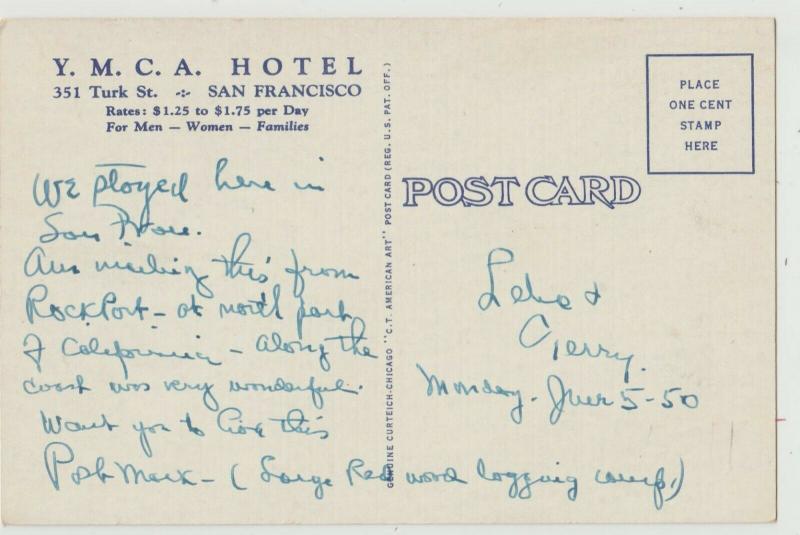 Y. M. C. A. HOTEL
351 Turk St. -:- SAN FRANCISCO
Rates: $1.25 to $1.75 per Day
For Men — Women — Families
We stayed here in
San Fran.
Am mailing this from
RockPort - at north part
of California - along the
coast was very wonderful.
Want you to have this
Post Mark - ( Large Red wood logging camp,)
GENUINE CURTEICH-CHICAGO "C.T. AMERICAN ART" POST CARD (REG. U.S. PAT. OFF.)
PLACE
ONE CENT
STAMP
HERE
POST CARD
&
Gerry.
Monday. June 5-50